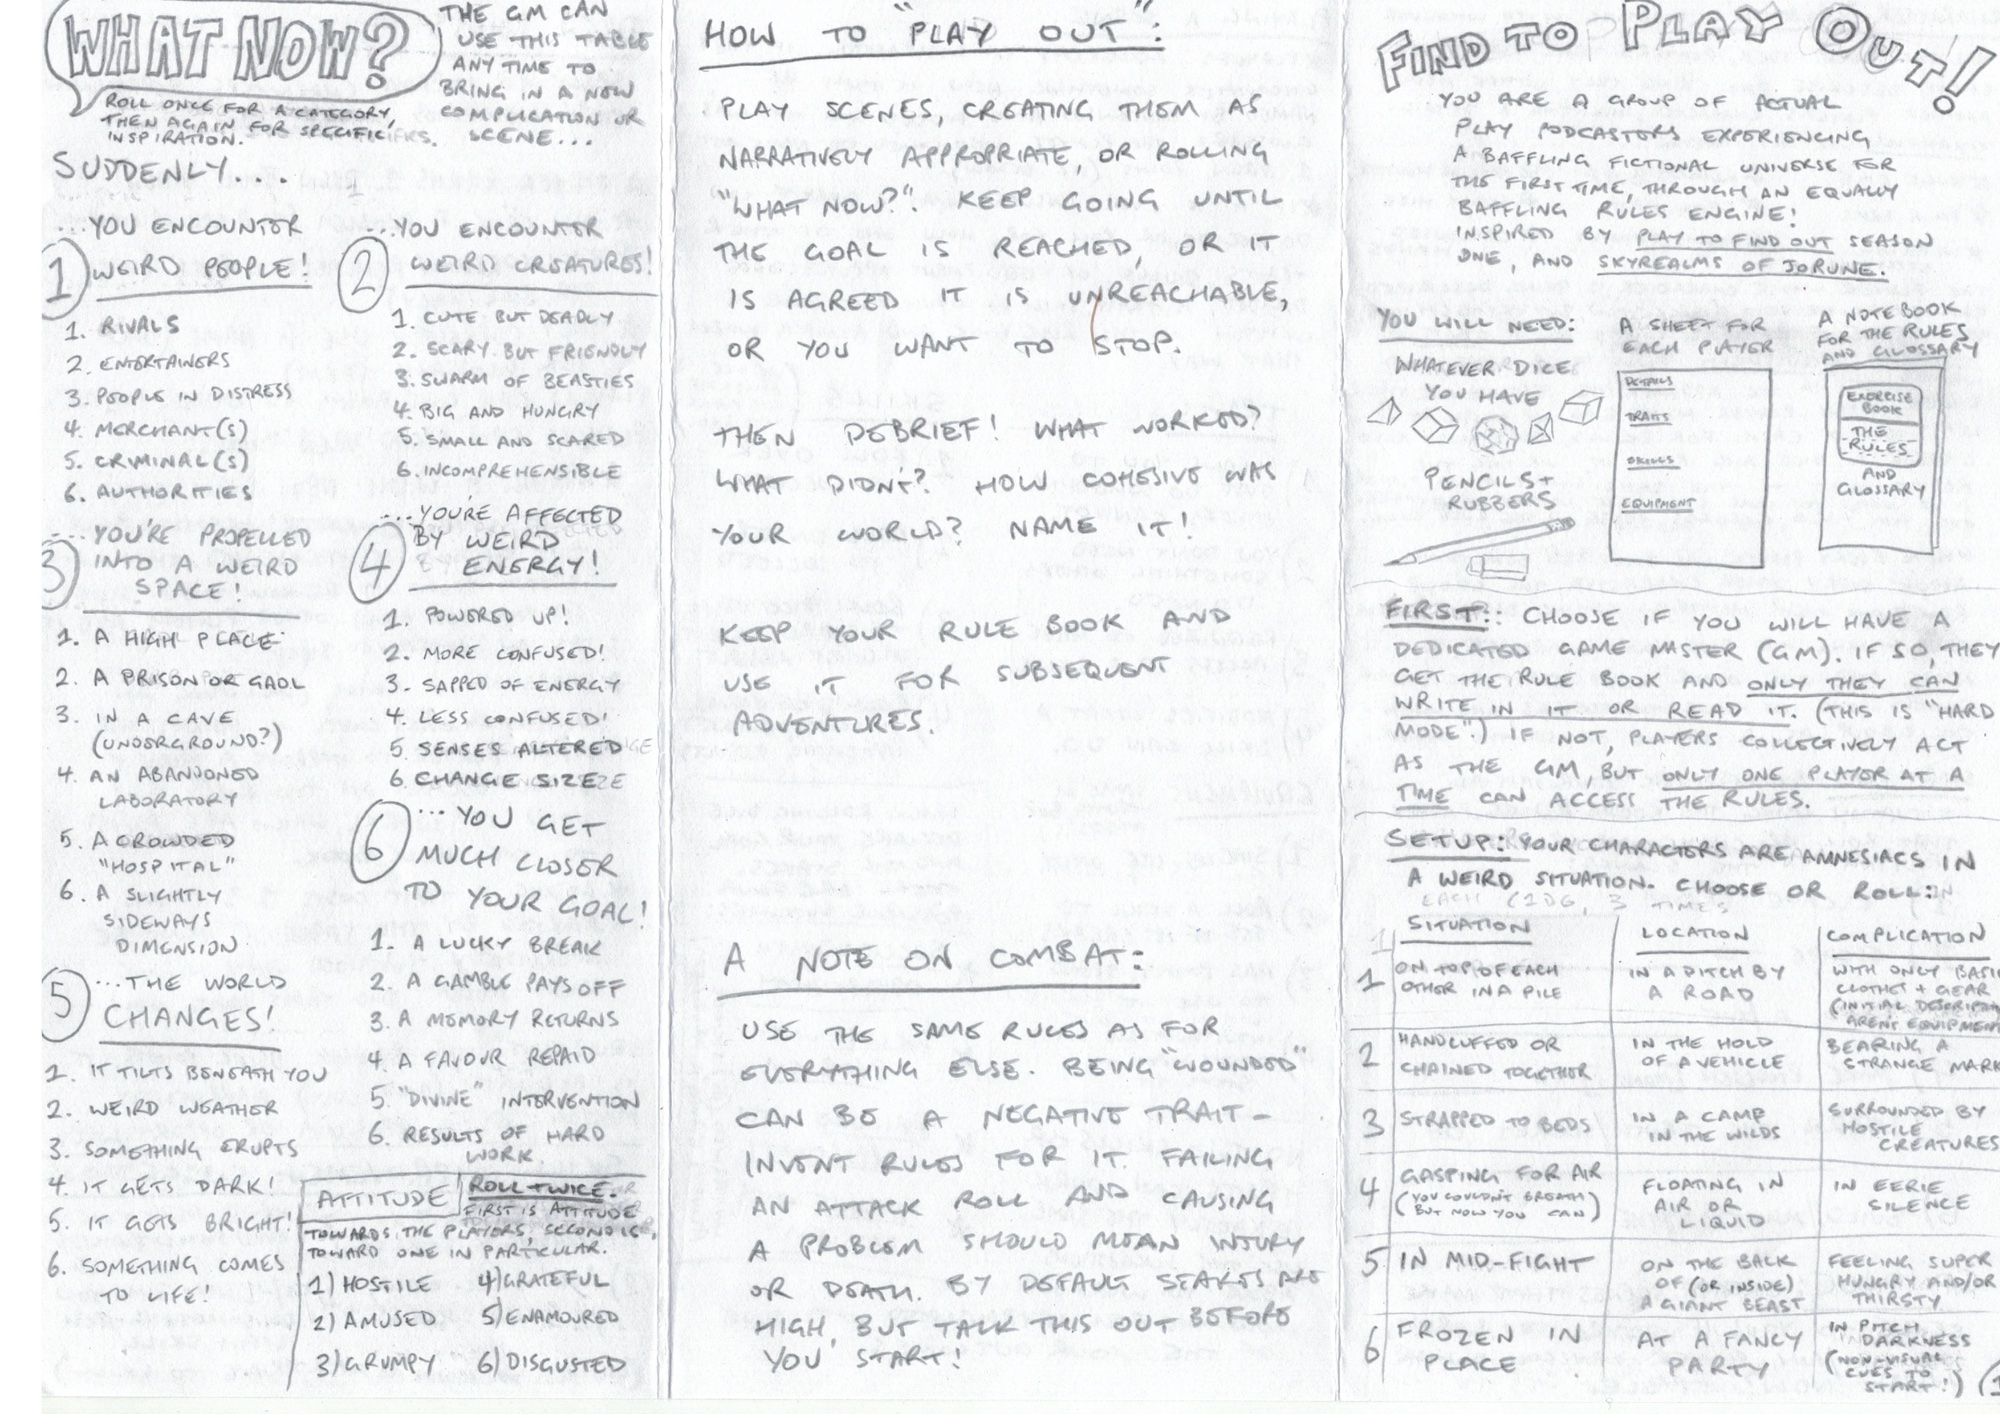 WHAT NOW?
ROLL ONCE FOR A CATEGORY,
THEN AGAIN FOR SPECIFIC
INSPIRATION.
THE GM CAN
USE THIS TABLE
ANY TIME TO
BRING IN A NEW
COMPLICATION OR
SCENE...
SUDDENLY...
...YOU ENCOUNTER
1 WEIRD PEOPLE!
1. RIVALS
2. ENTERTAINERS
3. PEOPLE IN DISTRESS
4. MERCHANT(S)
5. CRIMINAL(S)
6. AUTHORITIES
...YOU ENCOUNTER
2 WEIRD CREATURES!
1. CUTE BUT DEADLY
2. SCARY BUT FRIENDLY
3. SWARM OF BEASTIES
4. BIG AND HUNGRY
5. SMALL AND SCARED
6. INCOMPREHENSIBLE
...YOU'RE PROPELLED
3 INTO A WEIRD
SPACE!
1. A HIGH PLACE
2. A PRISON OR GAOL
3. IN A CAVE
(UNDERGROUND?)
4. AN ABANDONED
LABORATORY
5. A CROWDED
"HOSPITAL"
6. A SLIGHTLY
SIDEWAYS
DIMENSION
...YOU'RE AFFECTED
4 BY WEIRD
ENERGY!
1. POWERED UP!
2. MORE CONFUSED!
3. SAPPED OF ENERGY
4. LESS CONFUSED!
5. SENSES ALTERED
6. CHANGE SIZE
5 ...THE WORLD
CHANGES!
1. IT TILTS BENEATH YOU
2. WEIRD WEATHER
3. SOMETHING ERUPTS
4. IT GETS DARK!
5. IT GETS BRIGHT!
6. SOMETHING COMES
TO LIFE!
...YOU GET
6 MUCH CLOSER
TO YOUR GOAL!
1. A LUCKY BREAK
2. A GAMBLE PAYS OFF
3. A MEMORY RETURNS
4. A FAVOUR REPAID
5. "DIVINE" INTERVENTION
6. RESULTS OF HARD
WORK.
ATTITUDE
ROLL TWICE.
FIRST IS ATTITUDE
TOWARDS THE PLAYERS, SECOND IS
TOWARD ONE IN PARTICULAR.
1) HOSTILE 4) GRATEFUL
2) AMUSED 5) ENAMOURED
3) GRUMPY 6) DISGUSTED
HOW TO "PLAY OUT":
PLAY SCENES, CREATING THEM AS
NARRATIVELY APPROPRIATE, OR ROLLING
"WHAT NOW?". KEEP GOING UNTIL
THE GOAL IS REACHED, OR IT
IS AGREED IT IS UNREACHABLE,
OR YOU WANT TO STOP.
THEN DEBRIEF! WHAT WORKED?
WHAT DIDN'T? HOW COHESIVE WAS
YOUR WORLD? NAME IT!
KEEP YOUR RULE BOOK AND
USE IT FOR SUBSEQUENT
ADVENTURES.
A NOTE ON COMBAT:
USE THE SAME RULES AS FOR
EVERYTHING ELSE. BEING "WOUNDED"
CAN BE A NEGATIVE TRAIT -
INVENT RULES FOR IT. FAILING
AN ATTACK ROLL AND CAUSING
A PROBLEM SHOULD MEAN INJURY
OR DEATH. BY DEFAULT STAKES ARE
HIGH, BUT TALK THIS OUT BEFORE
YOU START!
FIND TO PLAY OUT!
YOU ARE A GROUP OF ACTUAL
PLAY PODCASTERS EXPERIENCING
A BAFFLING FICTIONAL UNIVERSE FOR
THE FIRST TIME, THROUGH AN EQUALLY
BAFFLING RULES ENGINE!
INSPIRED BY PLAY TO FIND OUT SEASON
ONE, AND SKYREALMS OF JORUNE.
YOU WILL NEED:
WHATEVER DICE
YOU HAVE
PENCILS +
RUBBERS
A SHEET FOR
EACH PLAYER
DETAILS
TRAITS
SKILLS
EQUIPMENT
A NOTEBOOK
FOR THE RULES
AND GLOSSARY
EXERCISE
BOOK
THE
RULES
AND
GLOSSARY
FIRST: CHOOSE IF YOU WILL HAVE A
DEDICATED GAME MASTER (GM). IF SO, THEY
GET THE RULE BOOK AND ONLY THEY CAN
WRITE IN IT OR READ IT. (THIS IS "HARD
MODE".) IF NOT, PLAYERS COLLECTIVELY ACT
AS THE GM, BUT ONLY ONE PLAYER AT A
TIME CAN ACCESS THE RULES.
SETUP: YOUR CHARACTERS ARE AMNESIACS IN
A WEIRD SITUATION. CHOOSE OR ROLL:
SITUATION LOCATION COMPLICATION
1 ON TOP OF EACH
OTHER IN A PILE
IN A DITCH BY
A ROAD
WITH ONLY BASIC
CLOTHES + GEAR
(INITIAL
AREN'T EQUIPMENT
2 HANDCUFFED OR
CHAINED TOGETHER
IN THE HOLD
OF A VEHICLE
BEARING A
STRANGE MARK
3 STRAPPED TO BEDS
IN A CAMP
IN THE WILDS
SURROUNDED BY
HOSTILE
CREATURES
4 GASPING FOR AIR
(YOU COULDN'T BREATH
BUT NOW YOU CAN)
FLOATING IN
AIR OR
LIQUID
IN EERIE
SILENCE
5 IN MID-FIGHT
ON THE BACK
OF (OR INSIDE)
A GIANT BEAST
FEELING SUPER
HUNGRY AND/OR
THIRSTY
6 FROZEN IN
PLACE
AT A FANCY
PARTY
IN PITCH
DARKNESS
(NON-VISUAL
CUES TO
START!)